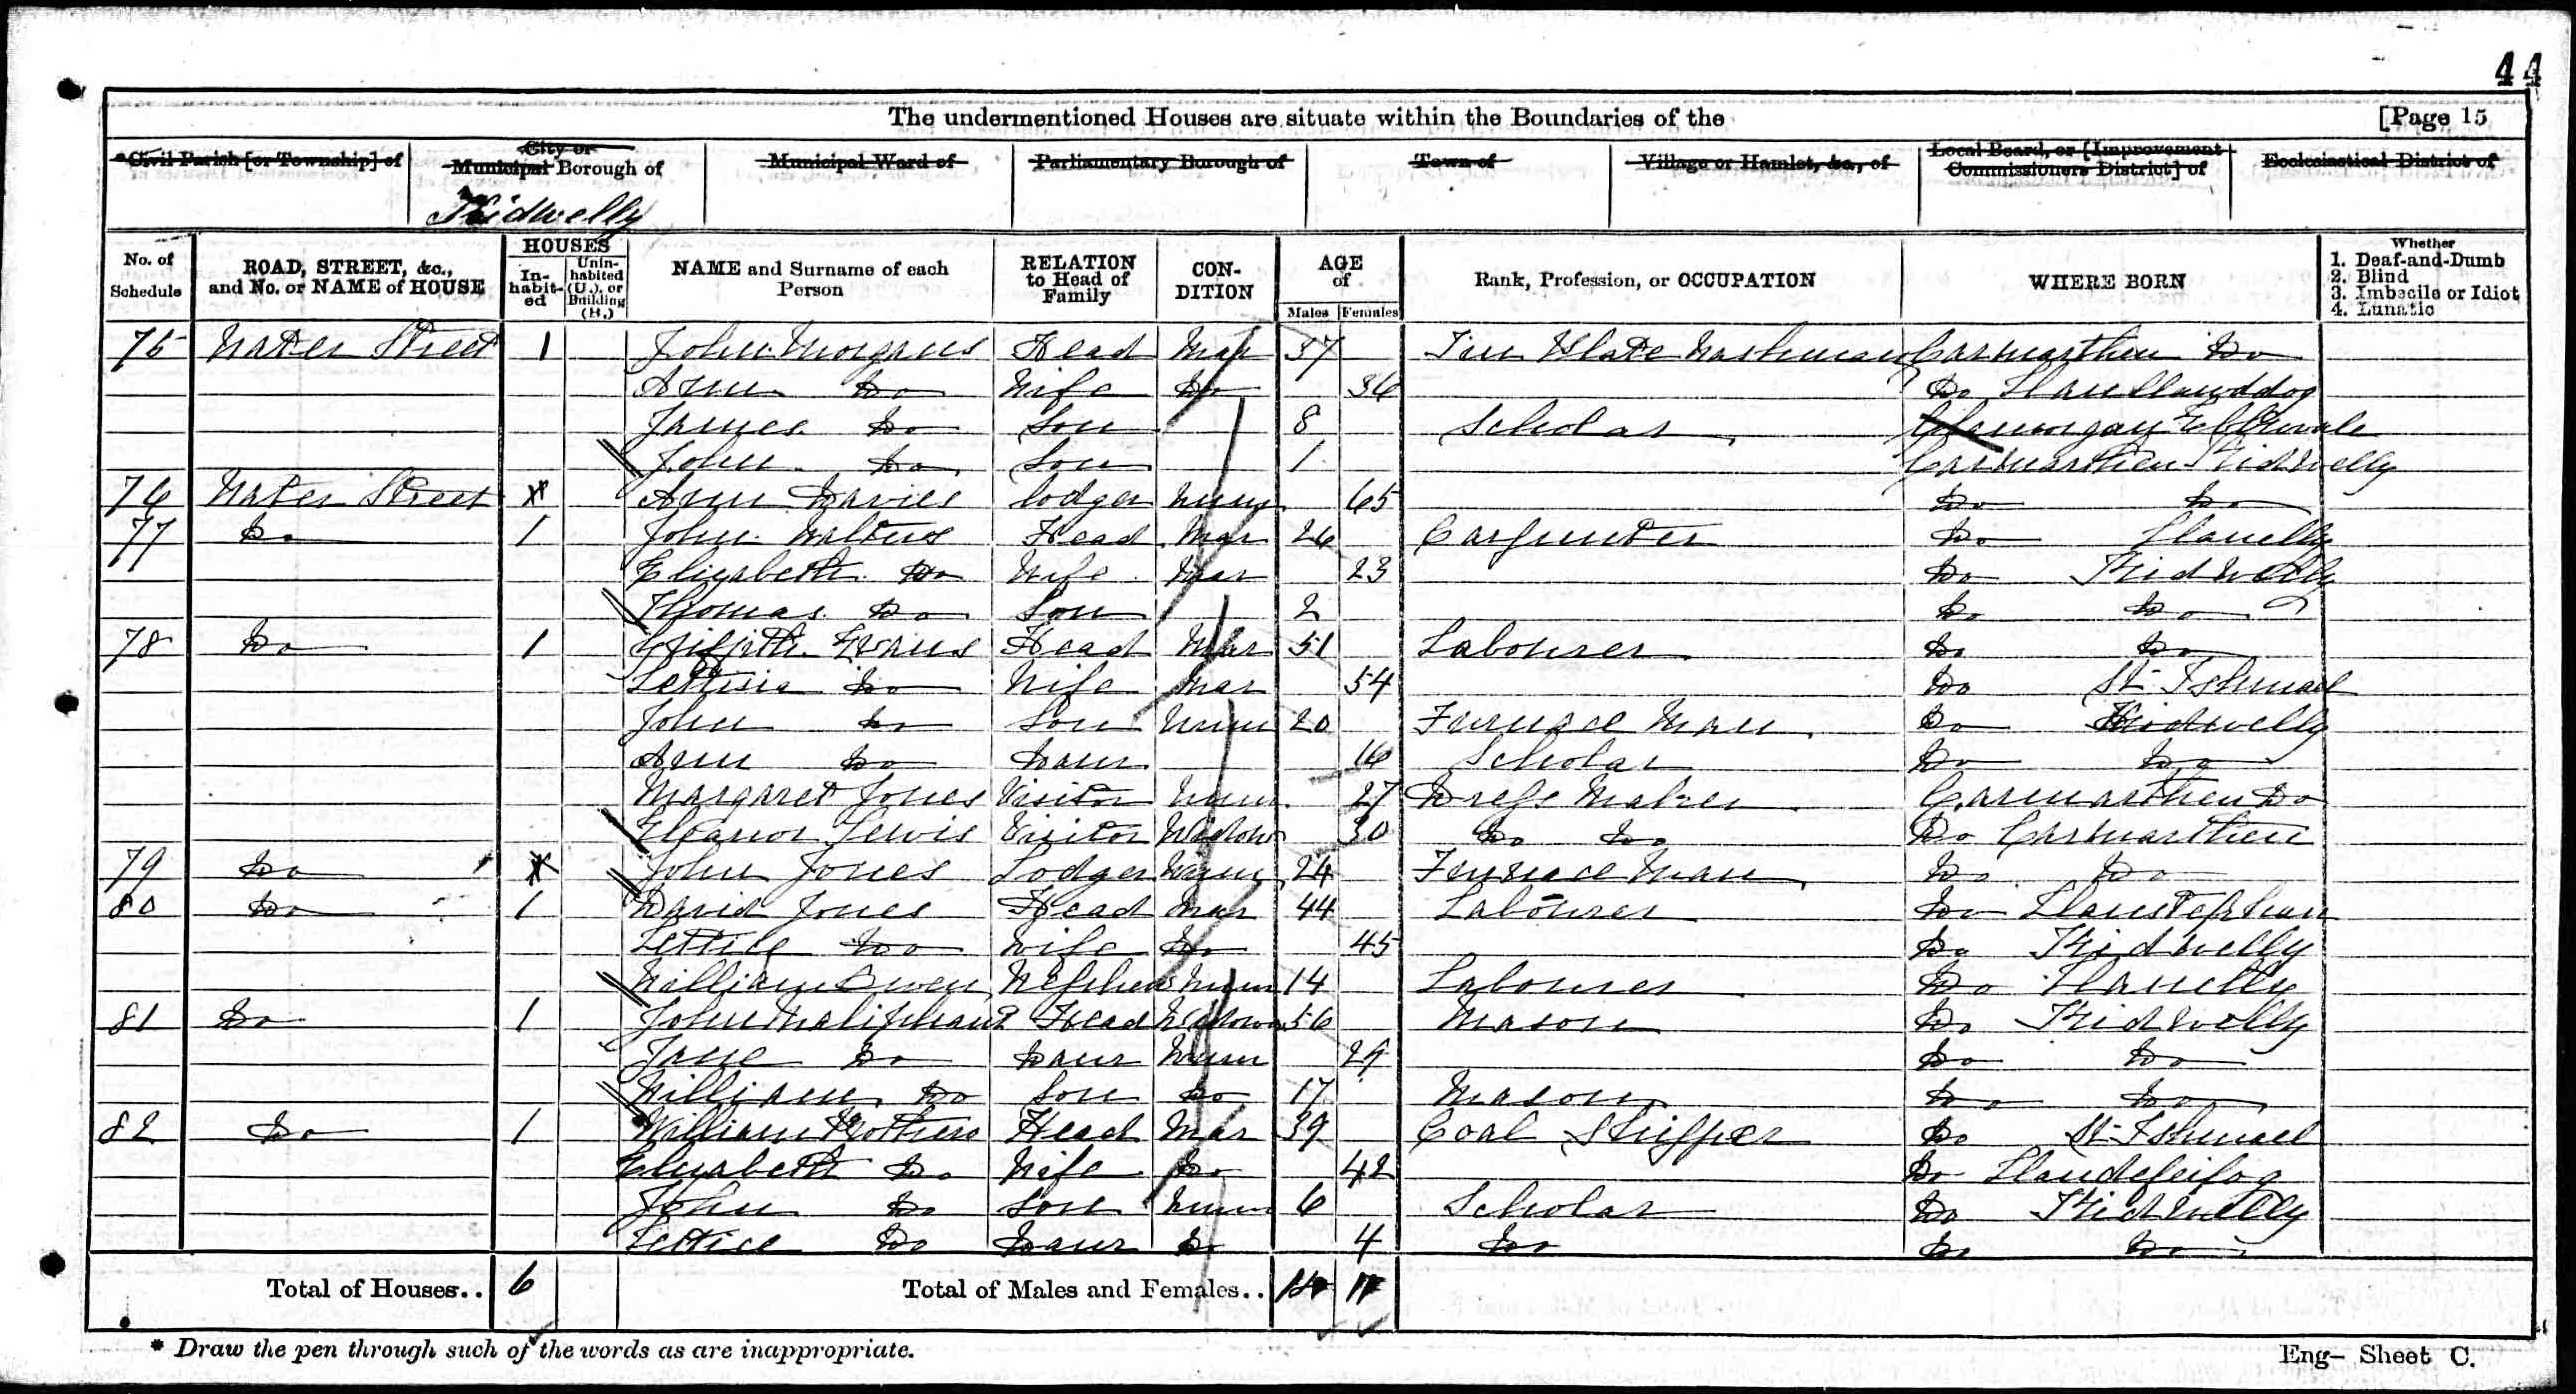 44
The undermentioned Houses are situate within the Boundaries of the [Page 15
*Civil Parish [or Township] of City or Municipal Borough of Municipal Ward of Parliamentary Borough of Town of Village or Hamlet, &c., of Local Board, or [Improvement Commissioners District] of Ecclesiastical District of
Kidwelly
No. of Schedule ROAD, STREET, &c., and No. or NAME of HOUSE HOUSES In-habit-ed Unin-habited (U.), or Building (B.) NAME and Surname of each Person RELATION to Head of Family CON-DITION AGE of Males Females Rank, Profession, or OCCUPATION WHERE BORN Whether 1. Deaf-and-Dumb 2. Blind 3. Imbecile or Idiot 4. Lunatic
75 Water Street 1 John Morgans Head Mar 37 Tin Plate Washman Carmarthen Do
Ann Do Wife Do 36 Do Llanllawddog
James Do Son 8 Scholar Glamorgan Ebbwvale
John Do Son 1 Carmarthen Kidwelly
76 Water Street Ann Davies lodger Unm 65 Do Do
77 Do 1 John Walters Head Mar 26 Carpunter Do Llanelly
Elizabeth Do Wife Mar 23 Do Kidwelly
Thomas Do Son 2 Do Do
78 Do 1 Griffith Evans Head Mar 51 Labourer Do Do
Lettisia Do Wife Mar 54 Do St Ishmael
John Do Son Unm 20 Furnace Man Do Kidwelly
Ann Do Daur 16 Scholar Do Do
Margaret Jones Visitor Unm 27 Dress Maker Carmarthen Do
Eleanor Lewis Visitor Widow 30 Do Do Do Carmarthen
79 Do John Jones Lodger Unm 24 Furnace Man Do Do
80 Do 1 David Jones Head Mar 44 Labourer Do Llanstephan
Lettice Do Wife Do 45 Do Kidwelly
William Owen Nephew Unm 14 Labourer Do Llanelly
81 Do 1 John Maliphant Head Widower 56 Mason Do Kidwelly
Jane Do Daur Unm 29 Do Do
William Do Son Do 17 Mason Do Do
82 Do 1 William Head Mar 39 Coal Shipper Do St Ishmael
Elizabeth Do Wife Do 42 Do
John Do Son Unm 6 Scholar Do Kidwelly
Lettice Do Daur Do 4 Do Do Do
Total of Houses.. 6 Total of Males and Females.. 14 11
* Draw the pen through such of the words as are inappropriate. Eng- Sheet C.